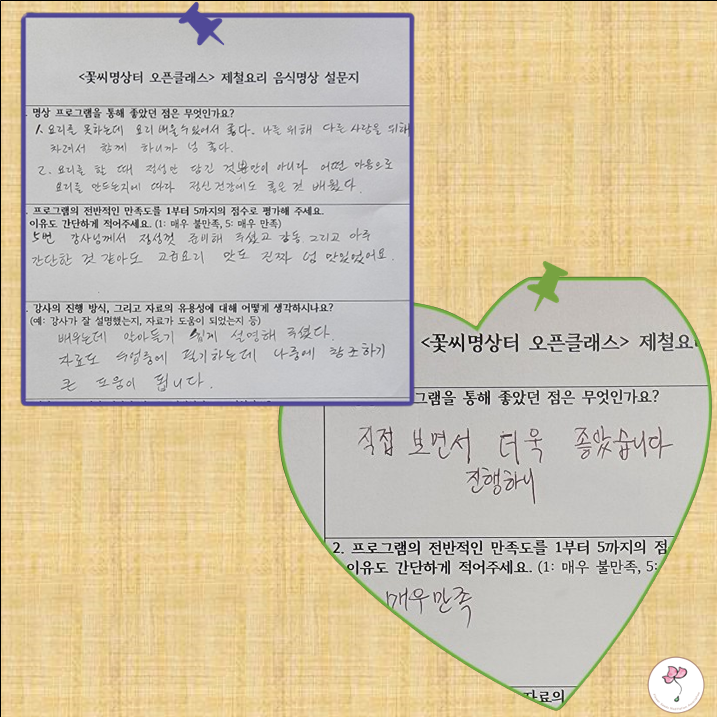 <꽃씨명상터 오픈클래스> 제철요리 음식명상 설문지
. 명상 프로그램을 통해 좋았던 점은 무엇인가요?
1. 요리를 못하는데 요리 배울 수 있어서 좋다. 나를 위해 다른 사람을 위해
차려서 함께 하니까 넘 좋다.
2. 요리를 할 때 정성만 담긴 것뿐만이 아니다 어떤 마음으로
요리를 만드는지에 따라 정신건강에도 좋은 것 배웠다.
. 프로그램의 전반적인 만족도를 1부터 5까지의 점수로 평가해 주세요.
이유도 간단하게 적어주세요. (1: 매우 불만족, 5: 매우 만족)
5번 강사님께서 정성껏 준비해 주셨고 감동 그리고 아주
간단한 것 같아도 고급요리 맛도 진짜 넘 맛있었어요.
. 강사의 진행 방식, 그리고 자료의 유용성에 대해 어떻게 생각하시나요?
(예: 강사가 잘 설명했는지, 자료가 도움이 되었는지 등)
배우는데 알아듣기 쉽게 설명해 주셨다.
자료도 수업중에 필기하는데 나중에 참조하기
큰 도움이 됩니다.
<꽃씨명상터 오픈클래스> 제철요
그램을 통해 좋았던 점은 무엇인가요?
직접 보면서 더욱 좋았습니다
진행하니
2. 프로그램의 전반적인 만족도를 1부터 5까지의 점
이유도 간단하게 적어주세요. (1: 매우 불만족, 5:
매우만족
자료의